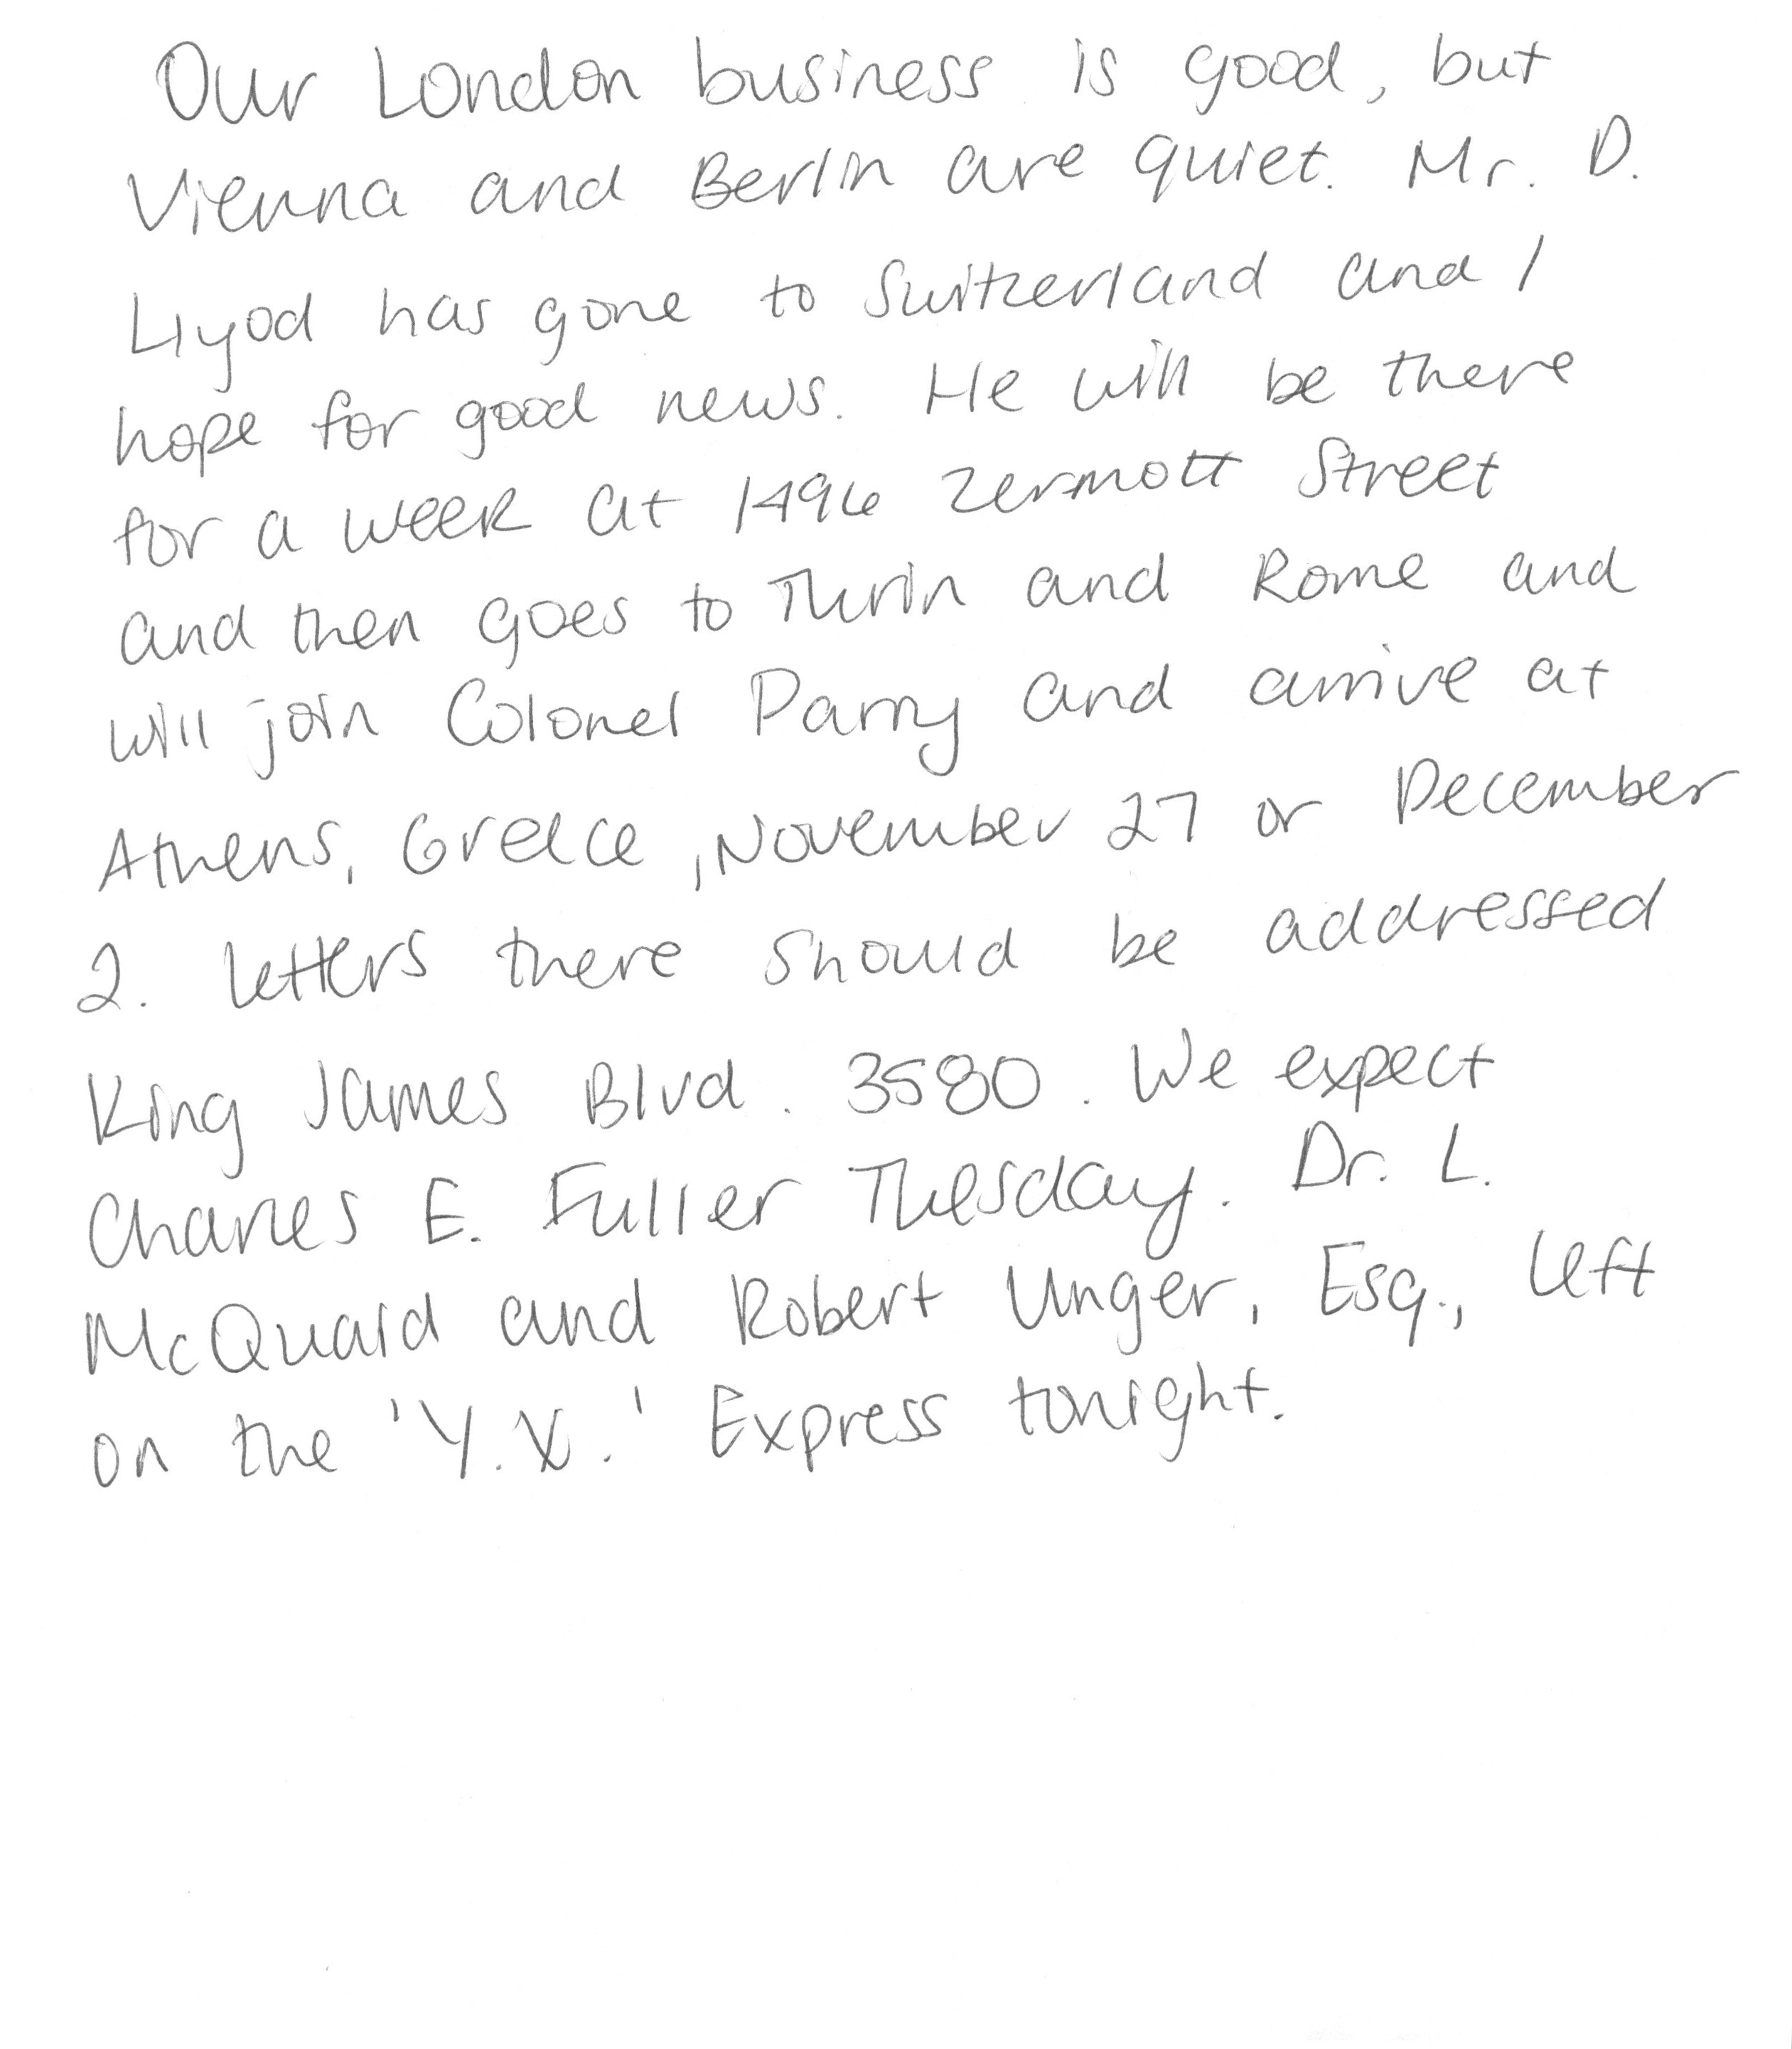 Our London business is good, but
Vienna and Berlin are quiet. Mr. D.
Llyod has gone to Switzerland and I
hope for good news. He will be there
for a week at 1496 Zermott Street
and then goes to Turin and Rome and
will join Colonel Parry and arrive at
Athens, Greece, November 27 or December
2. Letters there should be addressed
King James Blvd. 3580. We expect
Charles E. Fuller Tuesday. Dr. L.
McQuaid and Robert Unger, Esq., left
on the 'Y.X.' Express tonight.